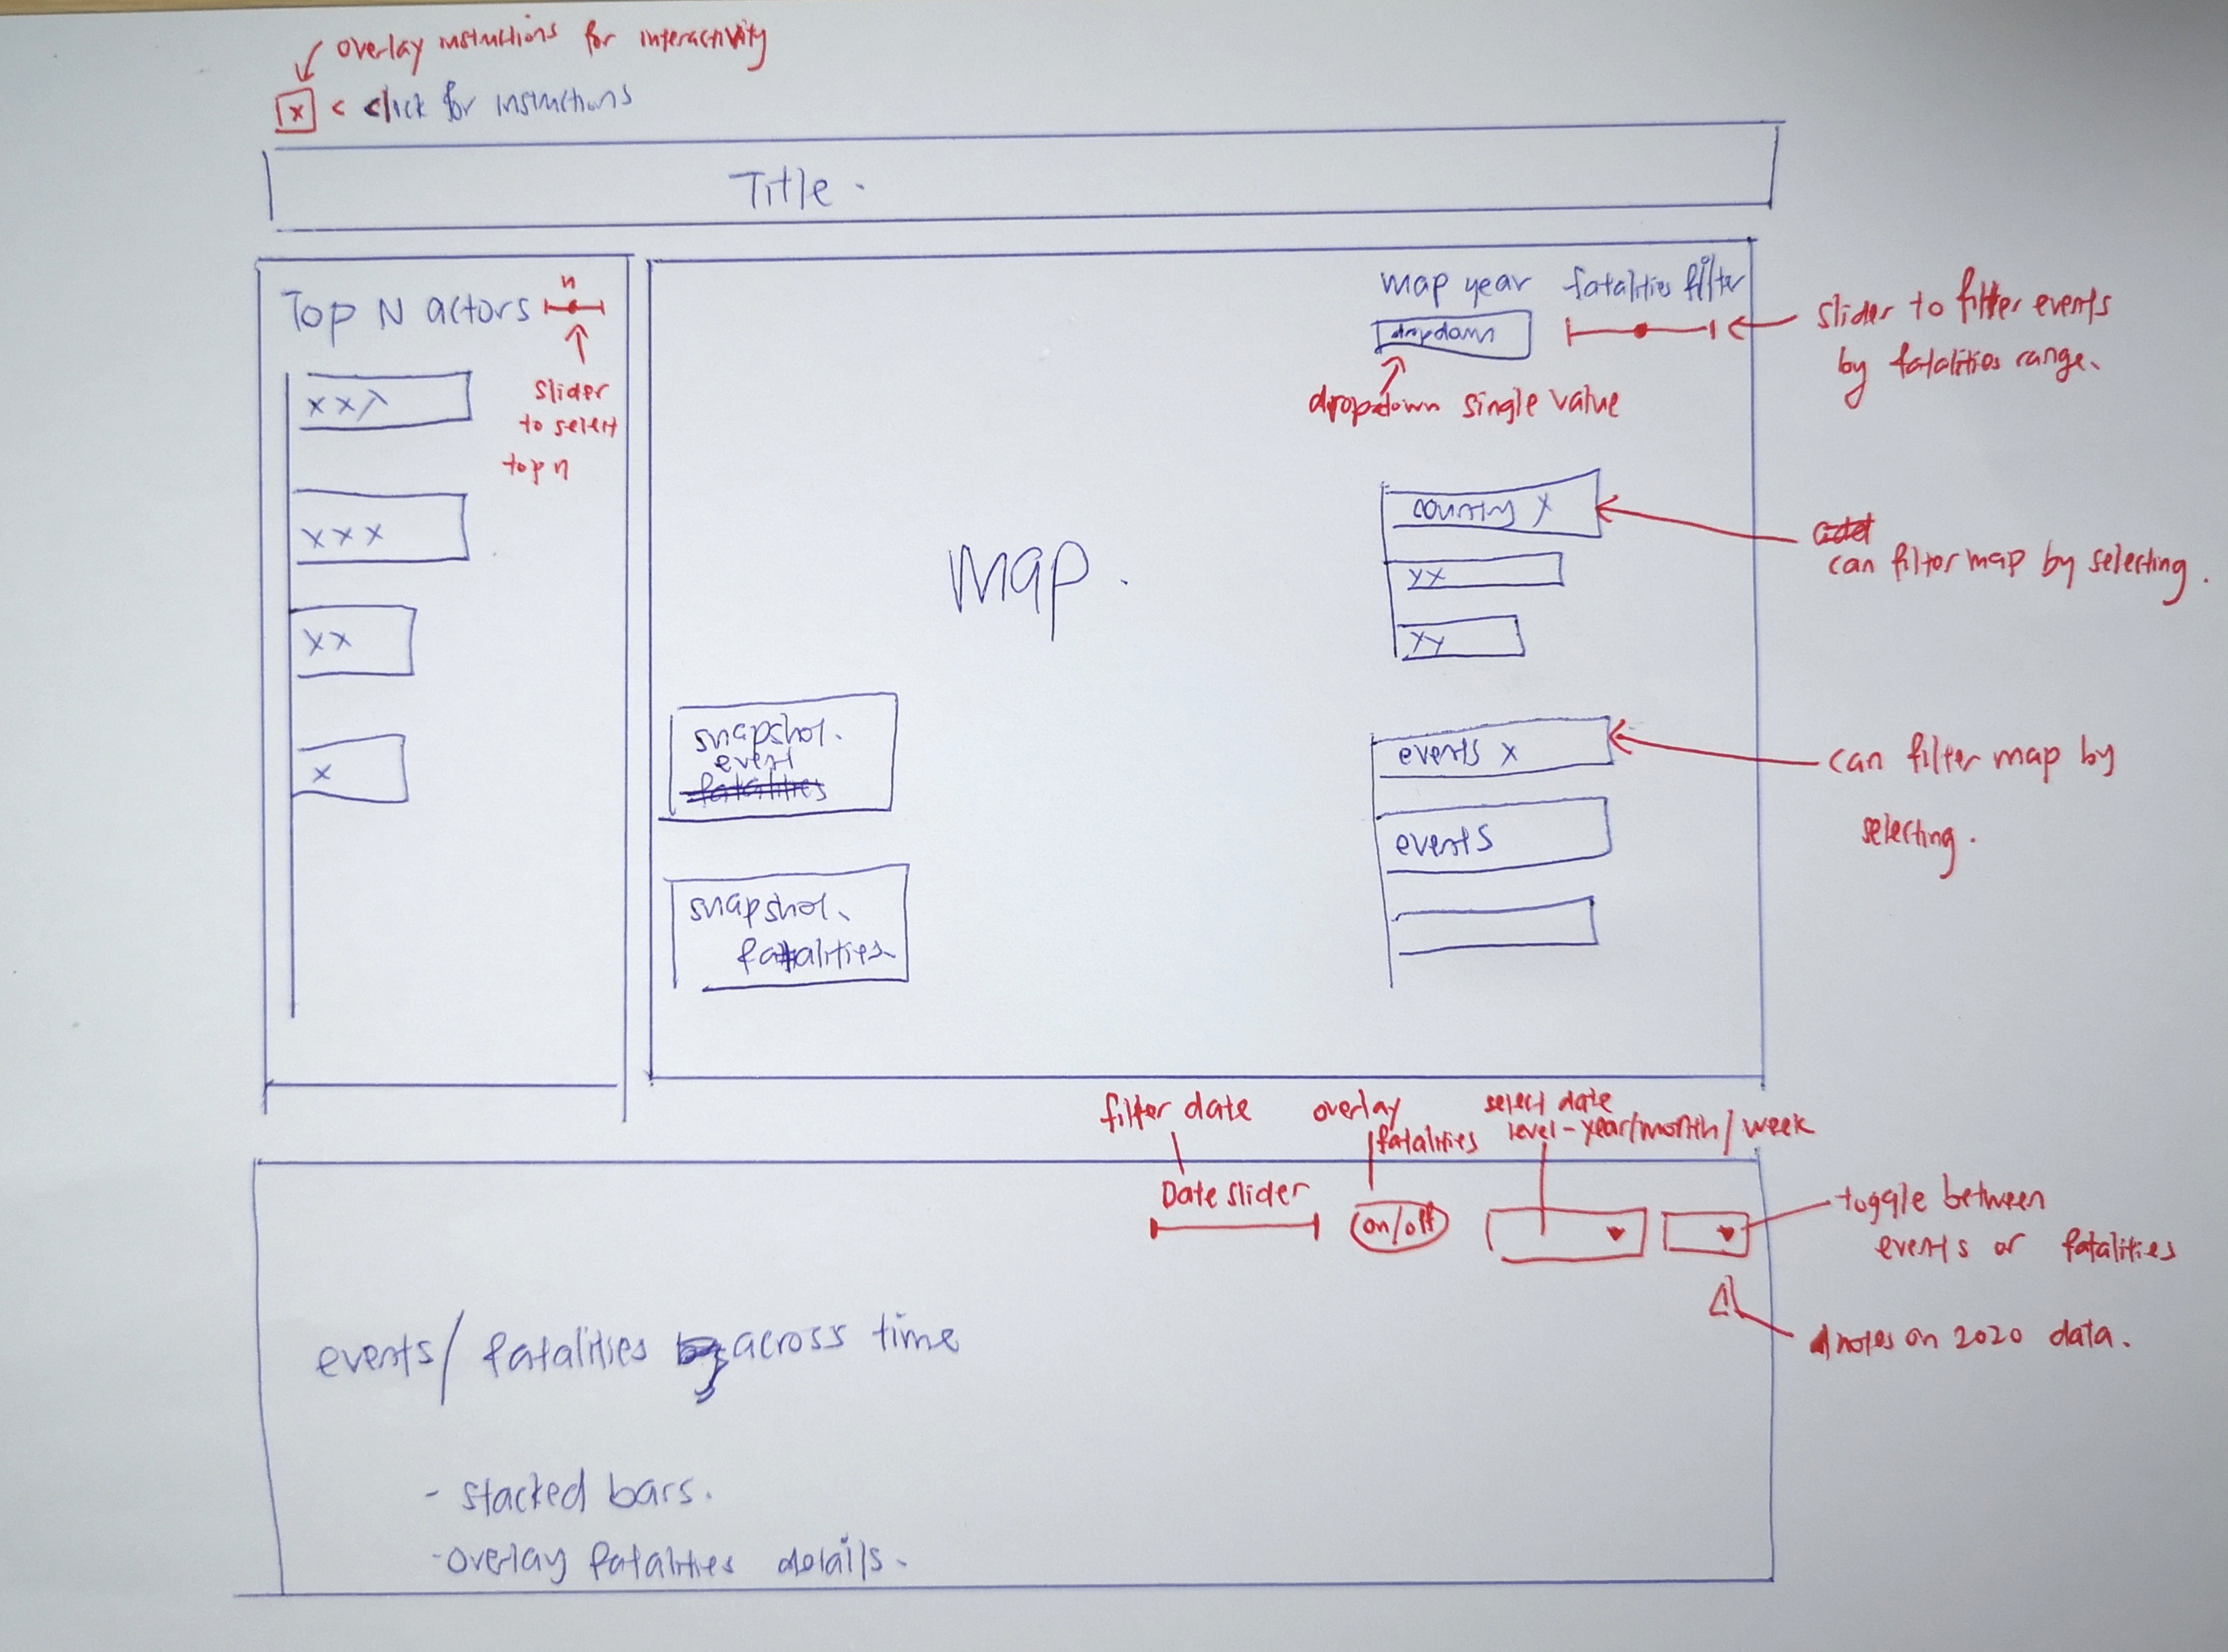 overlay instructions for interactivity
x < click for instructions
Title.
Top N actors
n
slider
to select
top n
xxx
xxx
xx
x
map year fatalities filter
dropdown
dropdown single value
slider to filter events
by fatalities range.
map.
country x
xx
xy
can filter map by selecting.
snapshot.
event
fatalities
snapshot.
fatalities
events x
events
can filter map by
selecting.
filter date
overlay
fatalities
select date
level - year/month/week
Date slider
on/off
toggle between
events or fatalities
notes on 2020 data.
events/fatalities across time
- stacked bars.
- overlay fatalities details.